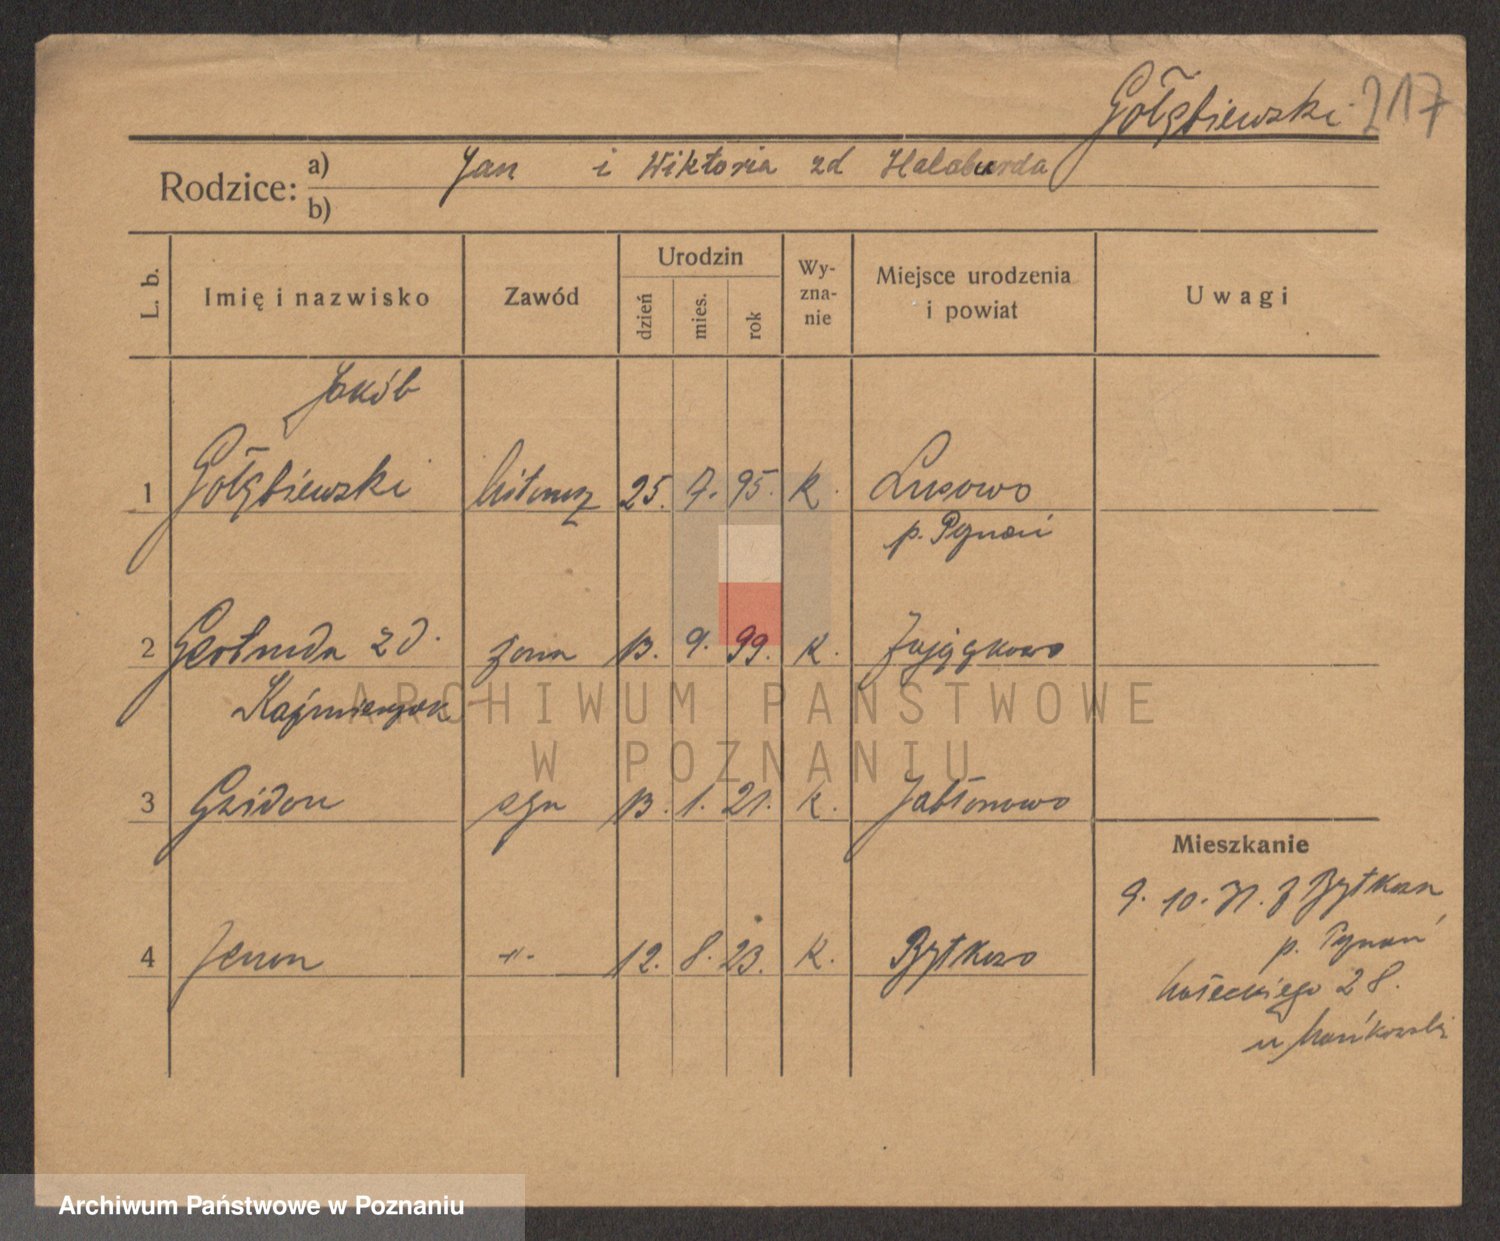 Gołębiewski 217
Rodzice: a) Jan i Wiktoria zd Halaburda
b)
L. b. Imię i nazwisko Zawód Urodzin dzień mies. rok Wy-zna-nie Miejsce urodzenia i powiat Uwagi
Jakób
1 Gołębiewski 25. 9. 95. k. Lusowo
p. Poznań
2 Gertruda zd. żona 13. 9. 99. k. Zajączkowo
Kaźmierczak
ARCHIWUM PAŃSTWOWE
W POZNANIU
3 syn 13. 1. 21. k. Jabłonowo
Mieszkanie
9. 10. 31. z Bytkowa
4 Zenon -"- 12. 8. 23. k. Bytkowo
p. Poznań
28.
u Mańkowski
Archiwum Państwowe w Poznaniu